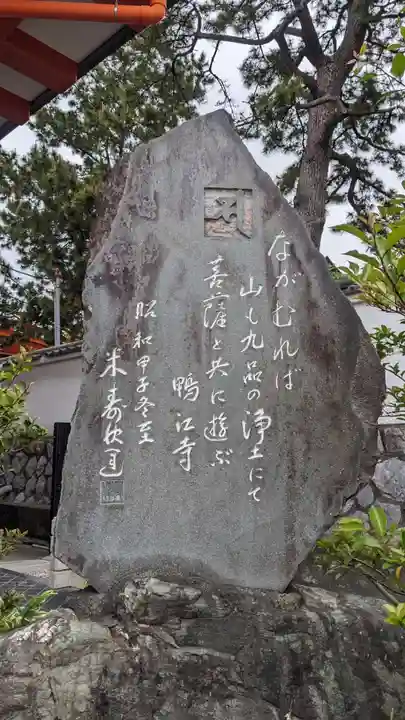 ながむれば
山も九品の浄土にて
菩薩と共に遊ぶ
鴨江寺
昭和甲子冬至
米寿